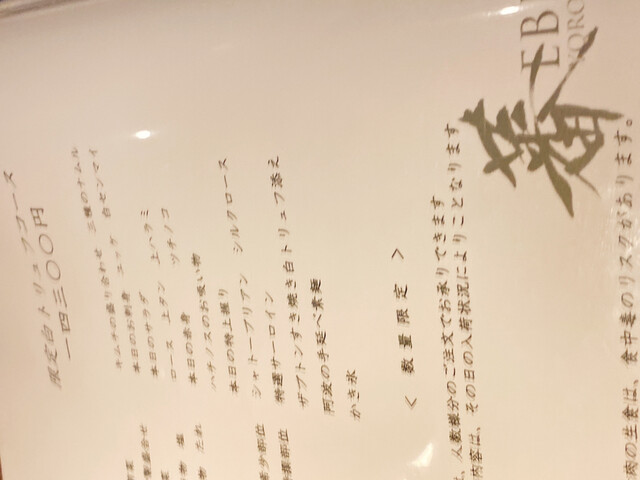 限定白トリュフコース
一四三〇〇円
キムチの盛り合わせ 三種のナムル
本日のお刺身 ユッケ 白センマイ
本日のサラダ
ロース 上タン 上ハラミ
本日の赤身 ツチノコ
ハチノスのお吸い物
本日の特上握り
シャトーブリアン シルクロース
特選サーロイン
ザブトンすき焼き白トリュフ添え
阿波の手延べ素麺
かき氷
< 数量限定 >
人数様分のご注文でお承りできます
内容は、その日の入荷状況によりことなります
EB
肉の生食は、食中毒のリスクがあります。
盛合せ
物 塩
物 たれ
希少部位
部位